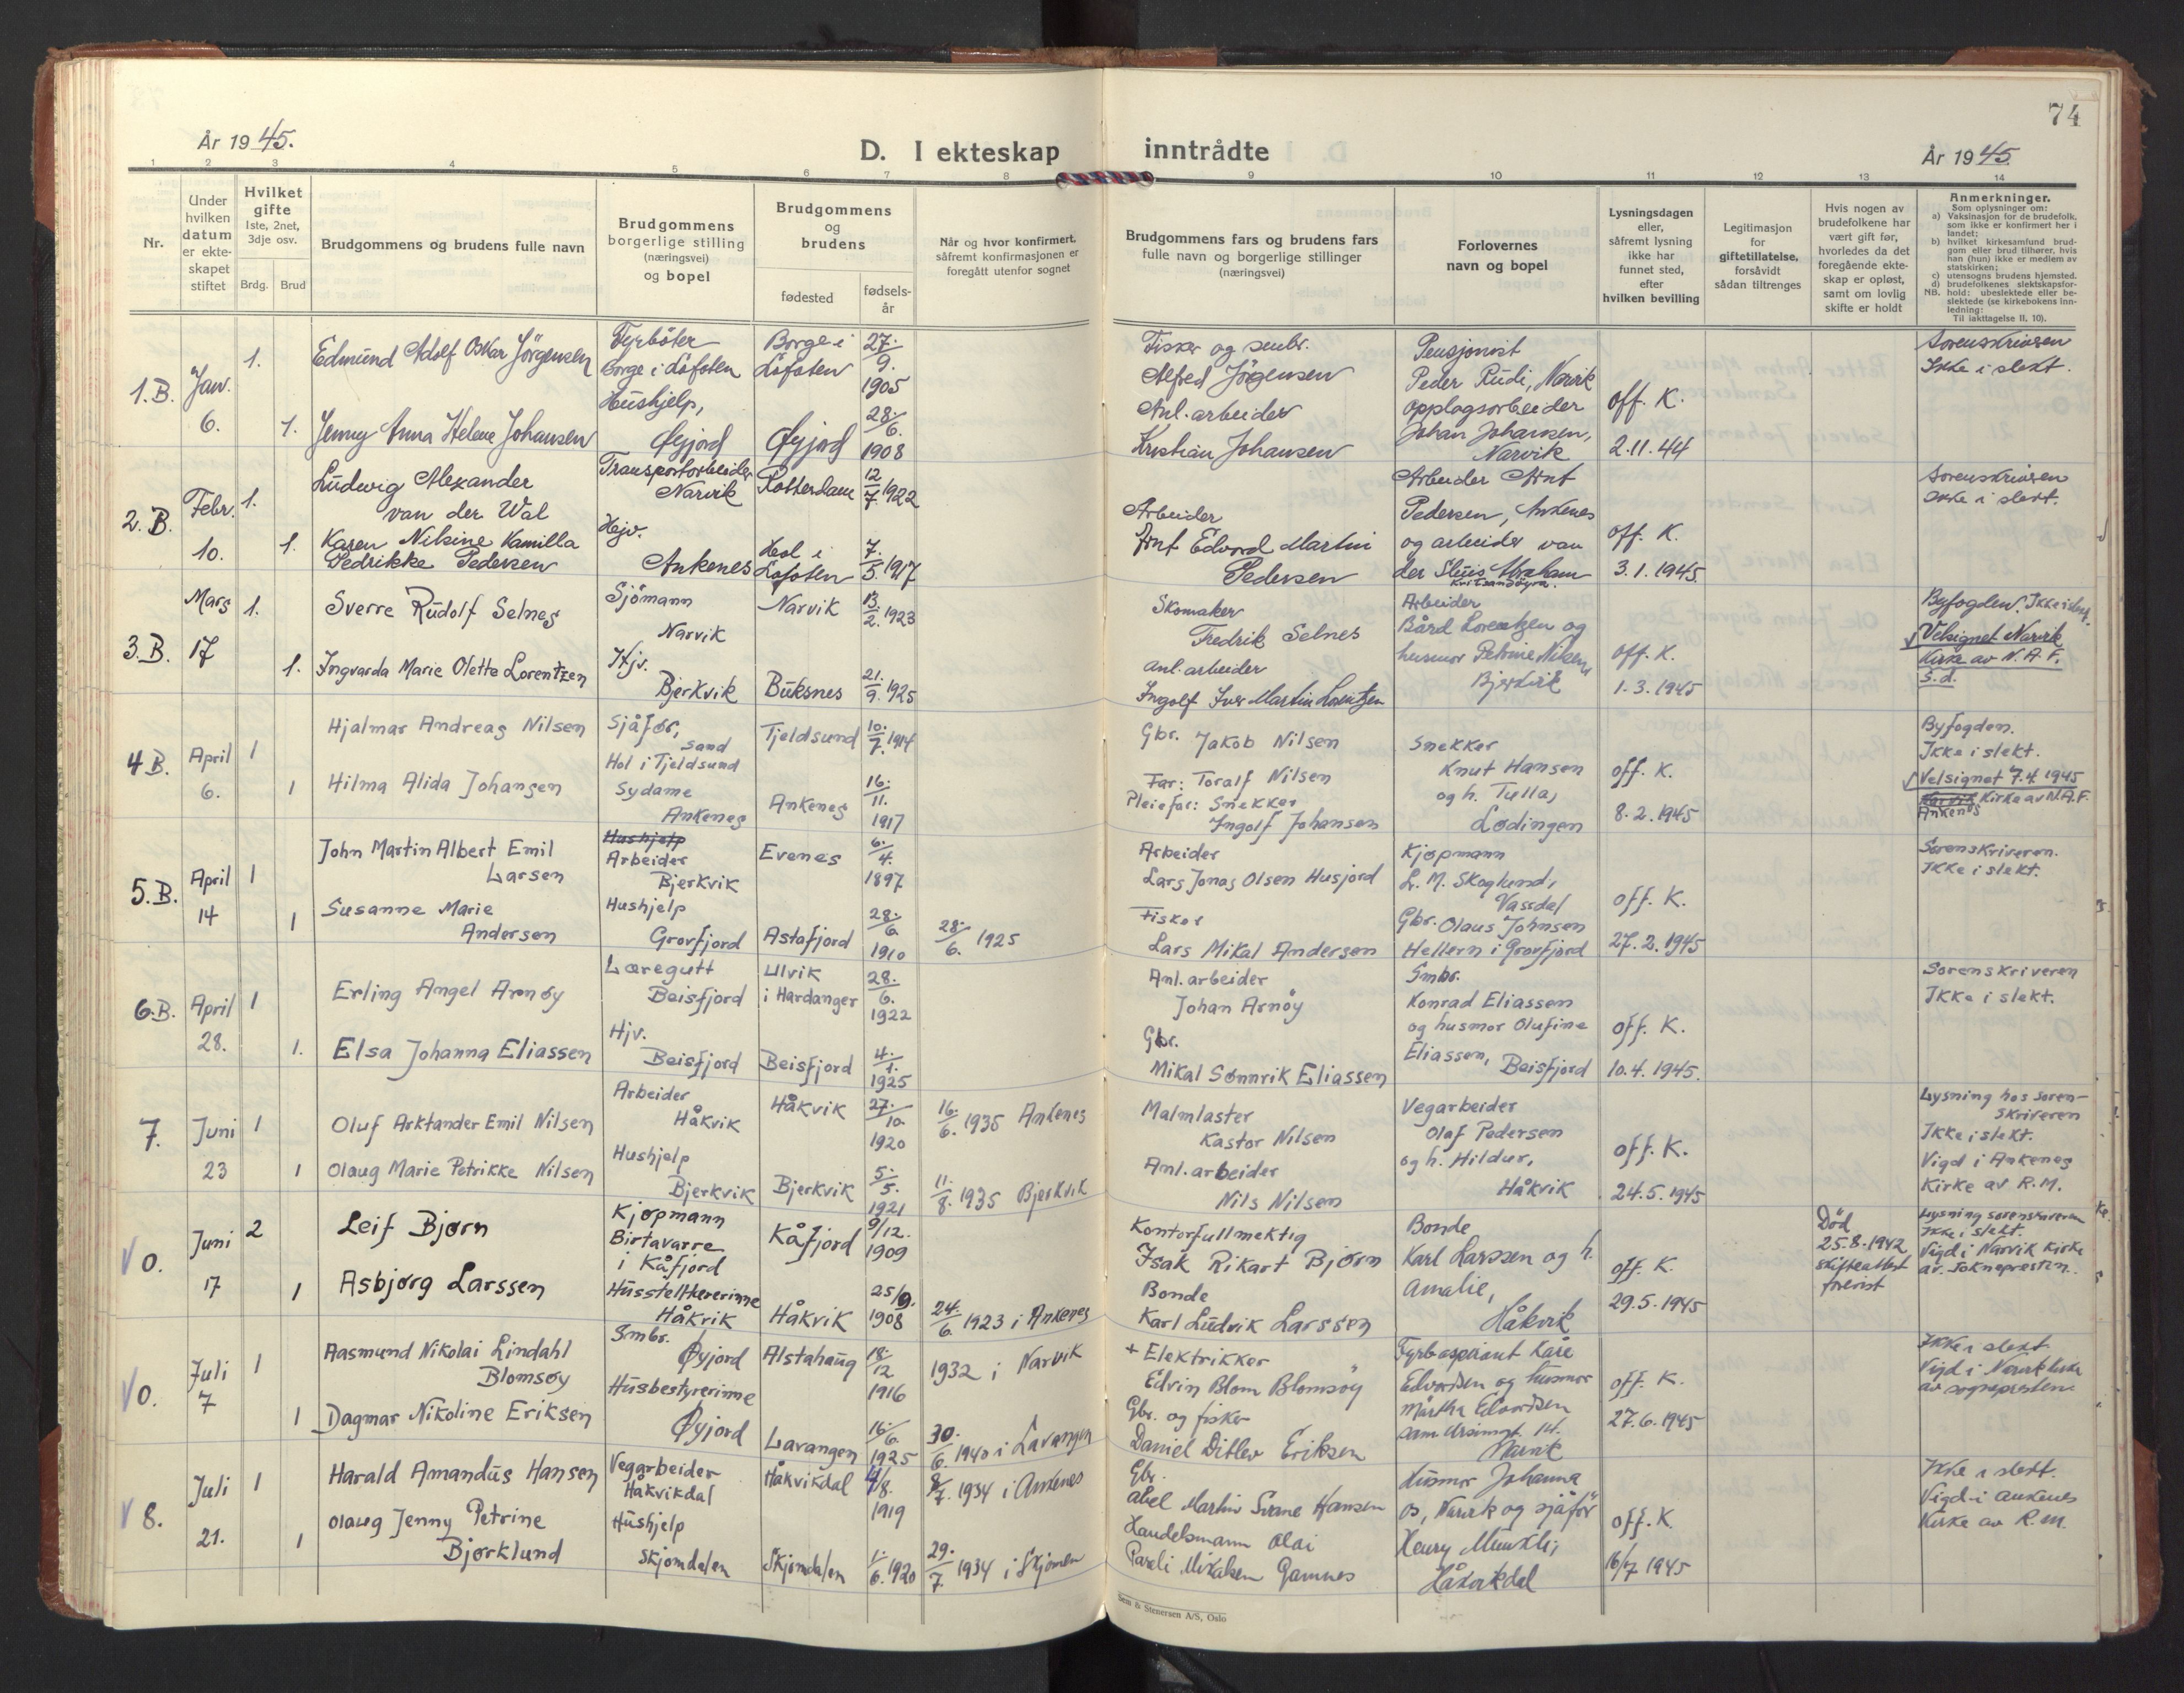 74
År 1945.
D. I ekteskap inntrådte
År 1945
1 2 3 4 5 6 7 8 9 10 11 12 13 14
Nr.
Under hvilken datum er ekteskapet stiftet
Hvilket gifte
1ste, 2net, 3dje osv.
Brdg. Brud
Brudgommens og brudens fulle navn
Brudgommens borgerlige stilling (næringsvei) og bopel
Brudgommens og brudens
fødested
fødselsår
Når og hvor konfirmert, såfremt konfirmasjonen er foregått utenfor sognet
Brudgommens fars og brudens fars fulle navn og borgerlige stillinger (næringsvei)
Forlovernes navn og bopel
Lysningsdagen eller, såfremt lysning ikke har funnet sted, efter hvilken bevilling
Legitimasjon for giftetillatelse, forsåvidt sådan tiltrenges
Hvis nogen av brudefolkene har vært gift før, hvorledes da det foregående ekteskap er opløst, samt om lovlig skifte er holdt
Anmerkninger.
Som oplysninger om:
a) Vaksinasjon for de brudefolk, som ikke er konfirmert her i landet;
b) hvilket kirkesamfund brudgom eller brud tilhører, hvis han (hun) ikke er medlem av statskirken;
c) utensogns brudens hjemsted.
d) brudefolkenes slektskapsforhold: ubeslektede eller beslektede (se kirkebokens innledning:
NB.
Til iakttagelse II, 10).
1.B. Jan. 6.
1. Edmund Adolf Oskar Jörgensen
Fyrböter
Borge i Lofoten
Borge i Lofoten
27/9. 1905
Fisker og smbr.
Alfred Jörgensen
Pensjonist
Peder Rudi, Narvik
opplagsarbeider
Johan Johansen,
Narvik
off. K.
2.11.44
Sorenskriveren
Ikke i slekt.
1. Jenny Anna Helene Johansen
Hushjelp,
Øyjord
Øyjord
28/6. 1908
Anl.arbeider
Kristian Johansen
2.B. Febr. 10.
1. Ludwig Alexander
van der Wal
Transportarbeider
Narvik
Rotterdam
12/7. 1922
Arbeider Arnt
Pedersen, Ankenes
og arbeider van
der Sluis Abraham
off. K.
3.1.1945
Sorenskriveren
Ikke i slekt.
1. Karen Nilsine Kamilla
Pedrikke Pedersen
Hjv.
Ankenes
Hol i Lofoten
7/5. 1917
Arbeider
Arnt Edvard Martin
Pedersen
3.B. Mars 17
1. Sverre Rudolf Selnes
Sjömann
Narvik
Narvik
13/2. 1923
Skomaker
Fredrik Selnes
Arbeider
Bård Lorentzen og
husmor Petrine Nilsen
Bjerkvik
off. K.
1.3.1945
Byfogden. Ikke i slekt.
Velsignet Narvik
Kirke av N.A.F.
S.d.
1. Ingvarda Marie Olette Lorentzen
Hjv.
Bjerkvik
Buksnes
21/9. 1925
anl.arbeider
Ingolf Iver Martin Lorentzen
4B. April 6.
1 Hjalmar Andreas Nilsen
Sjåfør,
Sand
Hol i Tjeldsund
Tjeldsund
10/7. 1914
Gbr. Jakob Nilsen
Snekker
Knut Hansen
og h. Tulla,
Lødingen
off. K.
8.2.1945
Byfogden.
Ikke i slekt.
Velsignet 7.4 1945
Narvik Kirke av N.A.F.
Ankenes
1 Hilma Alida Johansen
Sydame
Ankenes
Ankenes
16/11. 1917
Far: Toralf Nilsen
Pleiefar: Snekker
Ingolf Johansen
5.B. April 14
1 John Martin Albert Emil
Larsen
Hushjelp
Arbeider
Bjerkvik
Evenes
6/4. 1897
Arbeider
Lars Jonas Olsen Husjord
Kjøpmann
L. M. Skoglund,
Vassdal
Gbr. Olaus Johnsen
Hellern i Grovfjord
off. K.
27.2.1945
Sorenskriveren.
Ikke i slekt.
1 Susanne Marie
Andersen
Hushjelp
Grovfjord
Astafjord
28/6. 1910
28/6. 1925
Fisker
Lars Mikal Andersen
6.B. April 28.
1 Erling Angel Arnøy
Læregutt
Beisfjord
Ulvik
i Hardanger
28/6. 1922
Anl.arbeider
Johan Arnöy
Smbr.
Konrad Eliassen
og husmor Olufine
Eliassen, Beisfjord
off. K.
10.4.1945.
Sorenskriveren
Ikke i slekt.
1. Elsa Johanna Eliassen
Hjv.
Beisfjord
Beisfjord
4/1. 1925
Gbr.
Mikal Sønnrik Eliassen
7. Juni 23
1 Oluf Arktander Emil Nilsen
Arbeider
Håkvik
Håkvik
27/10 1920
16/6. 1935 Ankenes
Malmlaster
Kastor Nilsen
Vegarbeider
Olaf Pedersen
og h. Hildur,
Håkvik
off. K.
24.5.1945
Lysning hos sorenskriveren
Ikke i slekt.
Vigd i Ankenes
Kirke av R.M.
1 Olaug Marie Petrikke Nilsen
Hushjelp
Bjerkvik
Bjerkvik
5/5. 1921
11/8. 1935 Bjerkvik
Anl.arbeider
Nils Nilsen
V 0. Juni 17
2 Leif Bjørn
Kjøpmann
Birtavarre
i Kåfjord
Kåfjord
9/12. 1909
Kontorfullmektig
Isak Rikart Bjørn
Bonde
Karl Larssen og h.
Amalie,
Håkvik
off. K.
29.5.1945
Død
25.8.1942
skifteattest
forevist
Lysning sorenskriveren
Ikke i slekt.
Vigd i Narvik Kirke
av Sokneprestin.
1 Asbjørg Larssen
Husstellærerinne
Håkvik
Håkvik
25/9. 1908
24/6. 1923 i Ankenes
Bonde
Karl Ludvik Larssen
V 0. Juli 7
1 Aasmund Nikolai Lindahl
Blomsøy
Smbr.
Øyjord
Alstahaug
18/12 1916
1932 i Narvik
+ Elektrikker
Edvin Blom Blomsöy
Fyrbaspirant Kåre
Edvardsen og husmor
Mårtha Edvardsen
14.
Narvik
off. K.
27.6.1945
Ikke i slekt
Vigd i Narvik kirke
av sognepresten
1 Dagmar Nikoline Eriksen
Husbestyrerinne
Øyjord
Lavangen
16/6. 1925
30/6. 1940 i Lavangen
Gbr. og fisker
Daniel Ditlev Eriksen
V 8. Juli 21.
1 Harald Amandus Hansen
Vegarbeider
Håkvikdal
Håkvikdal
4/8. 1919
8/7. 1934 i Ankenes
Gbr.
Abel Martin Svane Hansen
Husmor Johanna
Os, Narvik og sjåför
Henry
Håkvikdal
off. K.
16/7 1945
Ikke i slekt.
Vigd i Ankenes
Kirke av R.M.
1 Olaug Jenny Petrine
Bjørklund
Hushjelp
Skjomdalen
Skjomdalen
1/6. 1920
29/7. 1934 i Skjomen
Handelsmann Olai
Pareli Mikalsen Gamnes
Sem & Stenersen A/S, Oslo